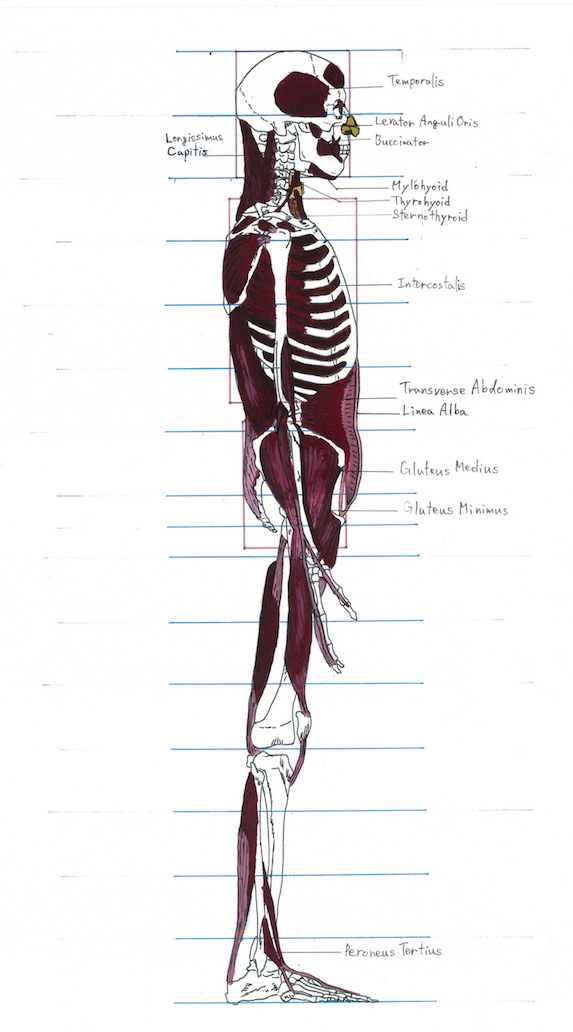 Temporalis
Lerator Anguli Oris
Buccinator
Longissimus
Capitis
Mylohyoid
Thyrohyoid
Sternothyroid
Intercostalis
Transverse Abdominis
Linea Alba
Gluteus Medius
Gluteus Minimus
Peroneus Tertius